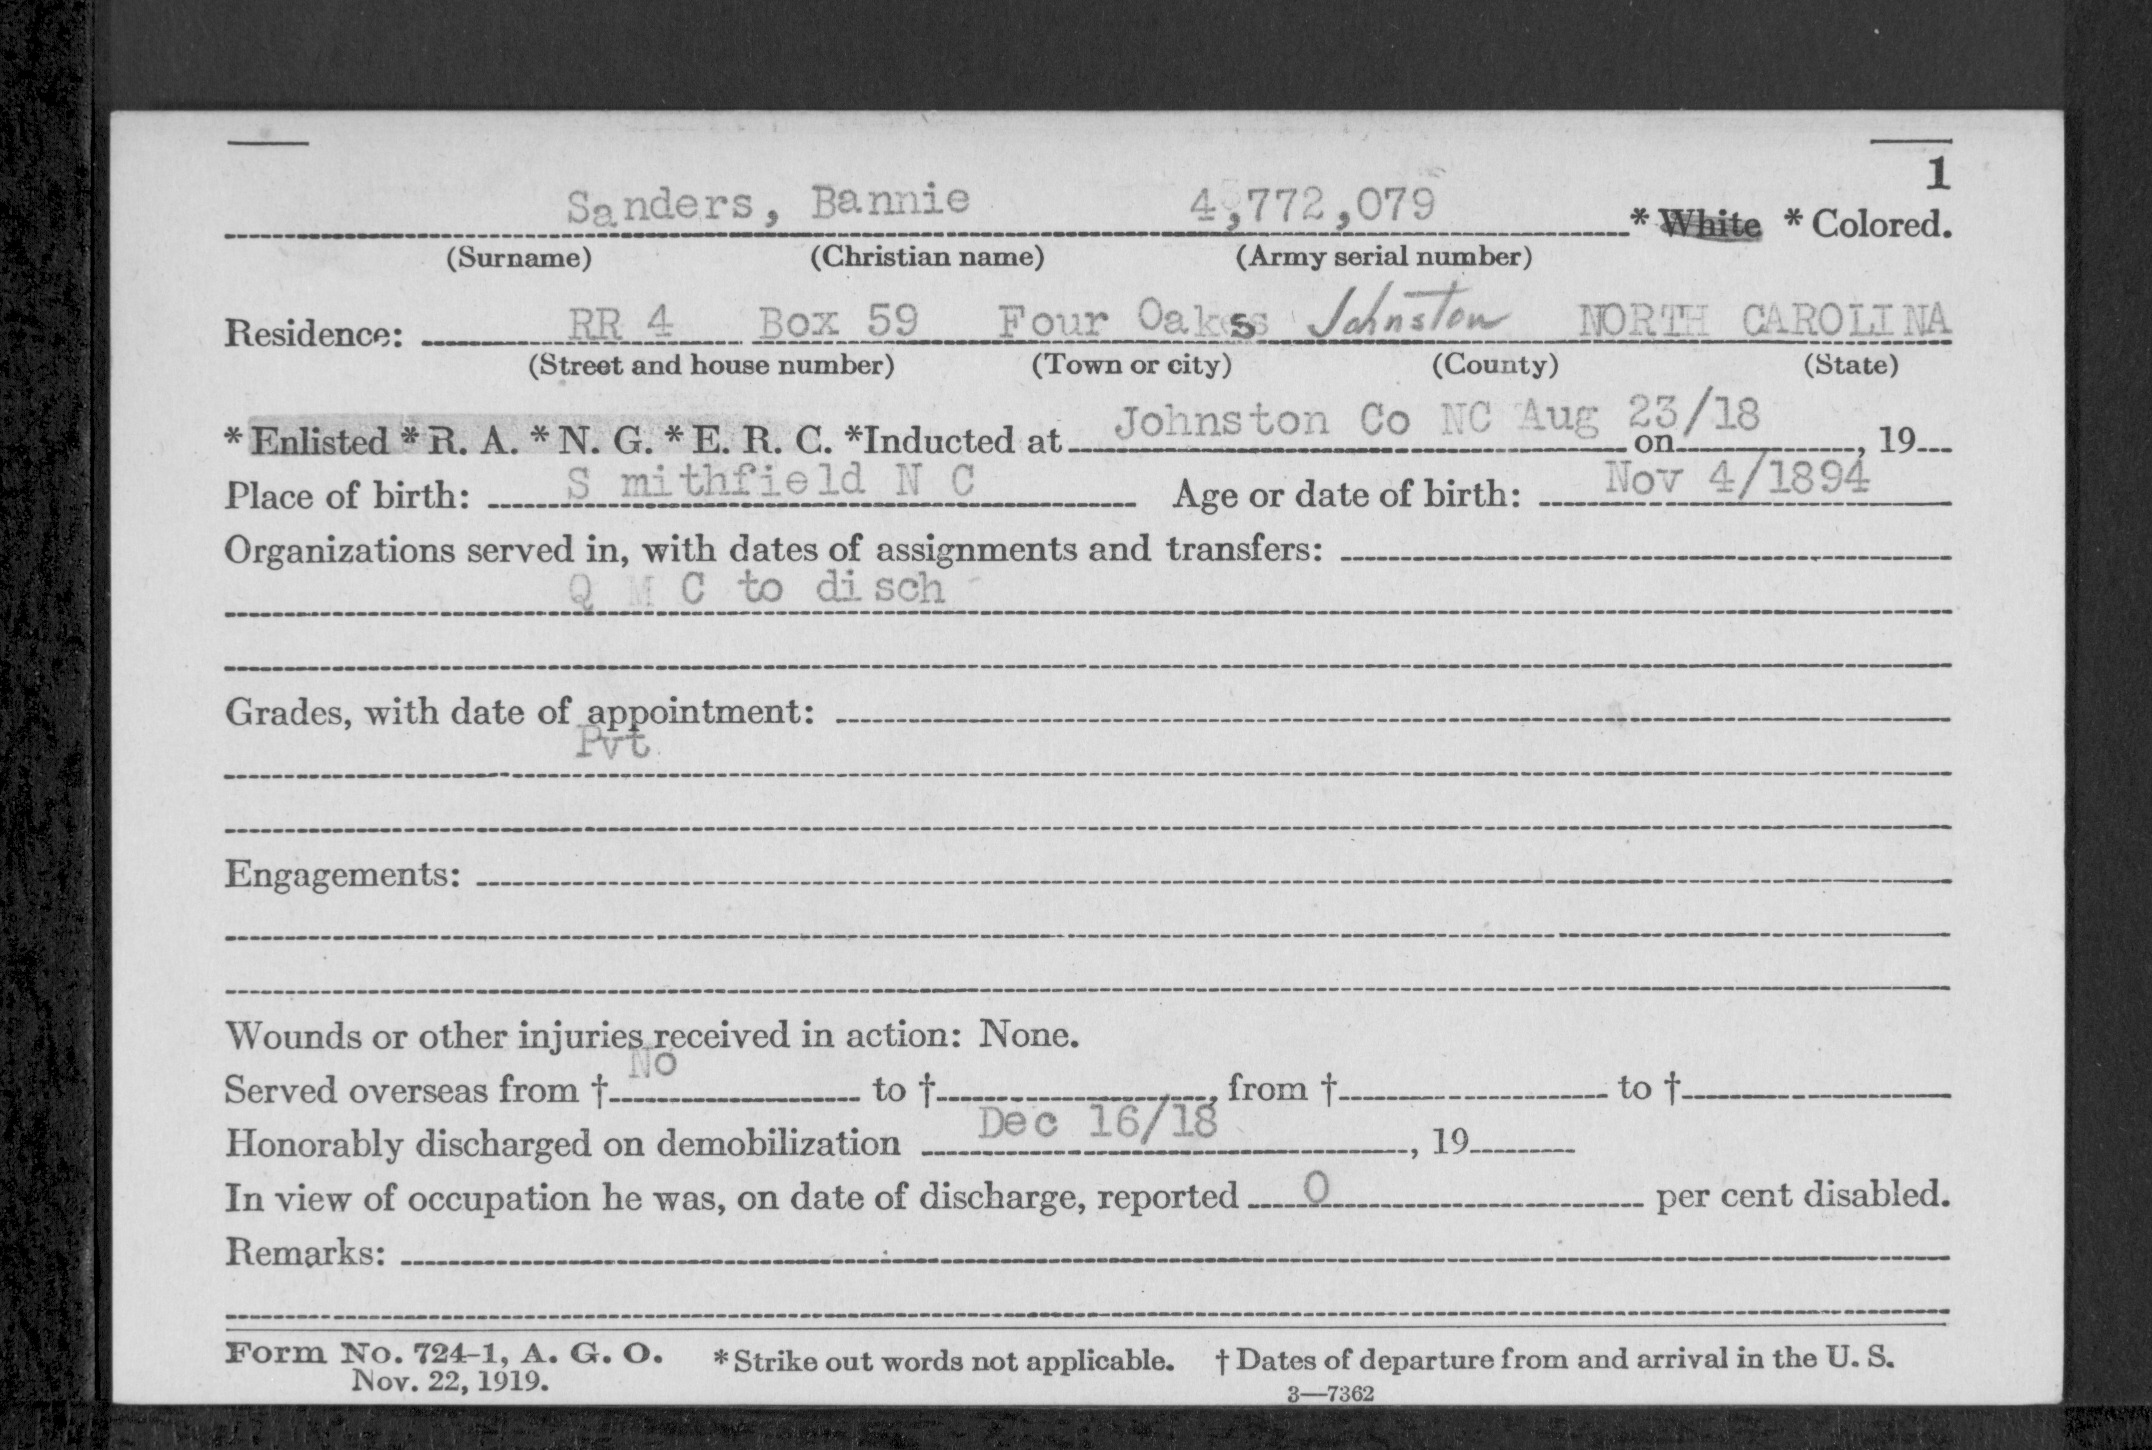 1
Sanders, Bannie 4,772,079 * White * Colored.
(Surname) (Christian name) (Army serial number)
Residence: RR 4 Box 59 Four Oaks Johnston NORTH CAROLINA
(Street and house number) (Town or city) (County) (State)
* Enlisted * R. A. * N. G. * E. R. C. *Inducted at Johnston Co NC Aug 23/18 on , 19
Place of birth: S mithfield N C Age or date of birth: Nov 4/1894
Organizations served in, with dates of assignments and transfers:
Q M C to disch
Grades, with date of appointment:
Pvt
Engagements:
Wounds or other injuries received in action: None.
Served overseas from † No to † , from † to †
Honorably discharged on demobilization Dec 16/18 , 19
In view of occupation he was, on date of discharge, reported 0 per cent disabled.
Remarks:
Form No. 724-1, A. G. O. * Strike out words not applicable. † Dates of departure from and arrival in the U. S.
Nov. 22, 1919. 3—7362